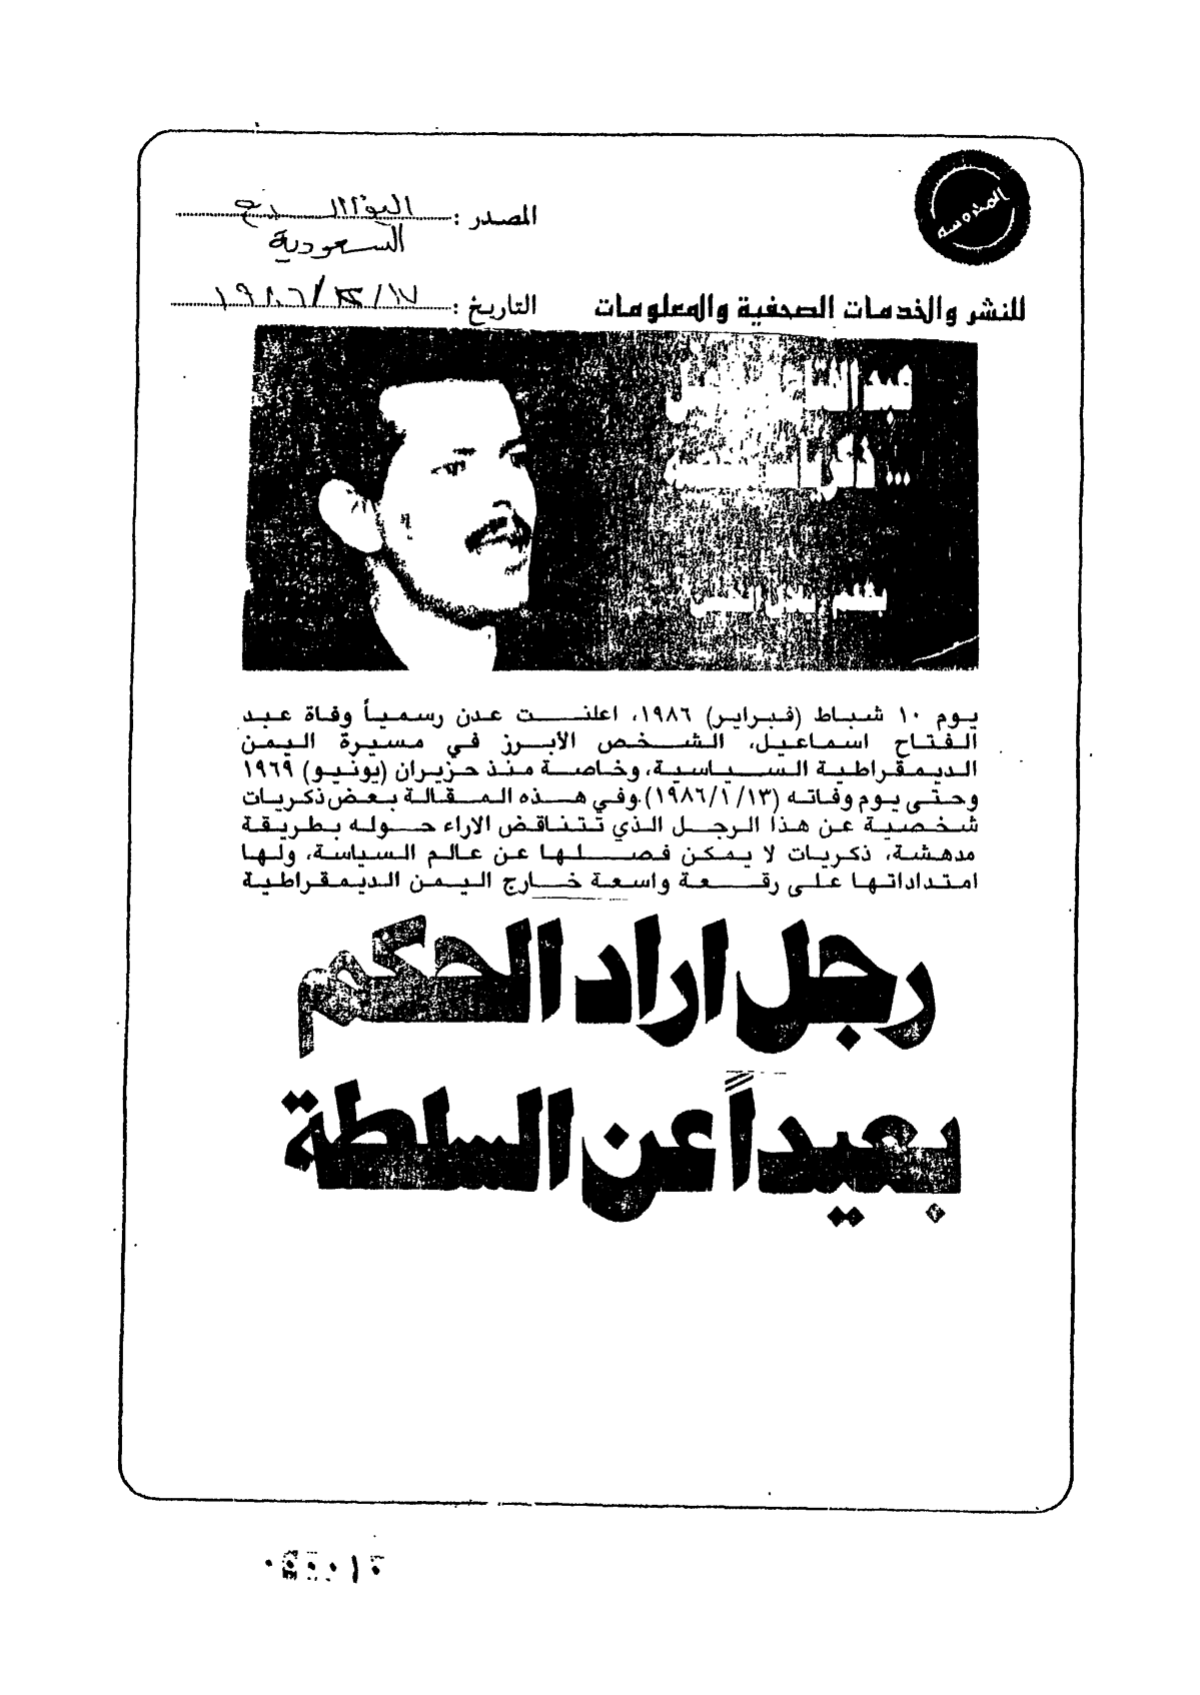 المحروسة
المصدر :
السعودية
للنشر والخدمات الصحفية والمعلومات
التاريخ :
عبد الفتاح اسماعيل
... ذكريات شخصية
بقلم بلال الحسن
يوم ١٠ شباط (فبراير) ١٩٨٦، اعلنت عدن رسمياً وفاة عبد
الفتاح اسماعيل، الشخص الأبرز في مسيرة اليمن
الديمقراطية السياسية، وخاصة منذ حزيران (يونيو) ١٩٦٩
وحتى يوم وفاته (١٣/ ١/ ١٩٨٦). وفي هذه المقالة بعض ذكريات
شخصية عن هذا الرجل الذي تتناقض الاراء حوله بطريقة
مدهشة، ذكريات لا يمكن فصلها عن عالم السياسة، ولها
امتداداتها على رقعة واسعة خارج اليمن الديمقراطية
رجل اراد الحكم
بعيداً عن السلطة